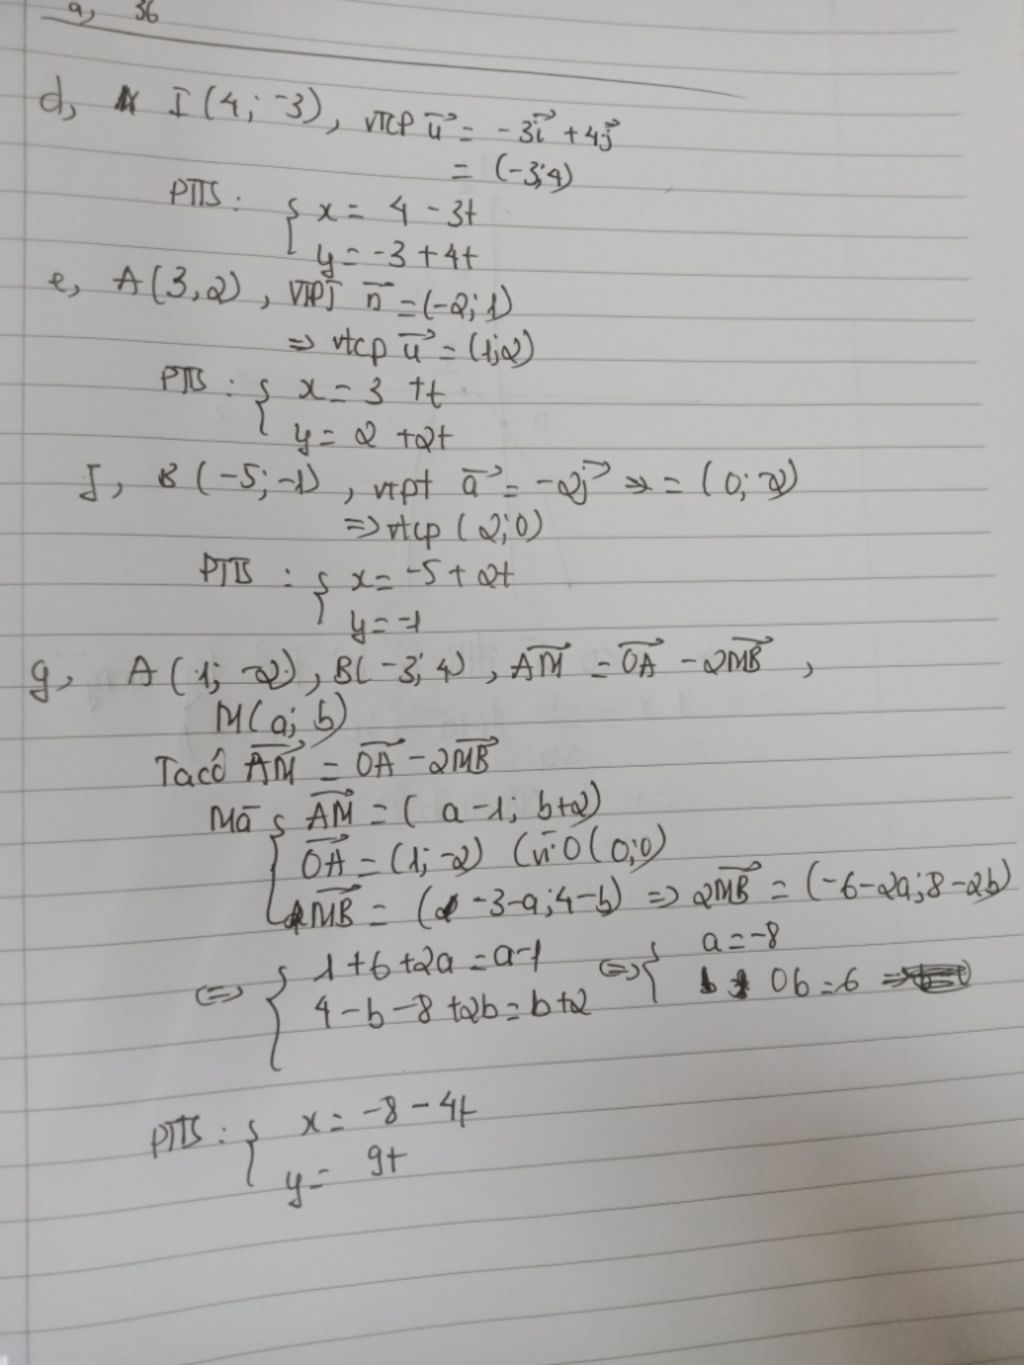 a, 36
d, I (4; -3), vtcp u⃗ = -3i⃗ + 4j⃗
= (-3; 4)
PTTS : { x = 4 - 3t
y = -3 + 4t
e, A(3, 2), VTPT n⃗ = (-2; 1)
=> vtcp u⃗ = (1; 2)
PTTS : { x = 3 + t
y = 2 + 2t
f, B (-5; -1), vtpt a⃗ = -2j⃗ = (0; -2)
=> vtcp (2; 0)
PTTS : { x = -5 + 2t
y = -1
g, A (1; -2), B(-3; 4), AM⃗ = OA⃗ - 2MB⃗ ,
M(a; b)
Ta có AM⃗ = OA⃗ - 2MB⃗
Mà { AM⃗ = (a-1; b+2)
OA⃗ = (1; -2) (vì O(0;0)
MB⃗ = (-3-a; 4-b) => 2MB⃗ = (-6-2a; 8-2b)
<=> { 1+6+2a = a-1 <=> { a = -8
4-b-8+2b = b+2 0b = 6
PTTS : { x = -8 - 4t
y = 9t